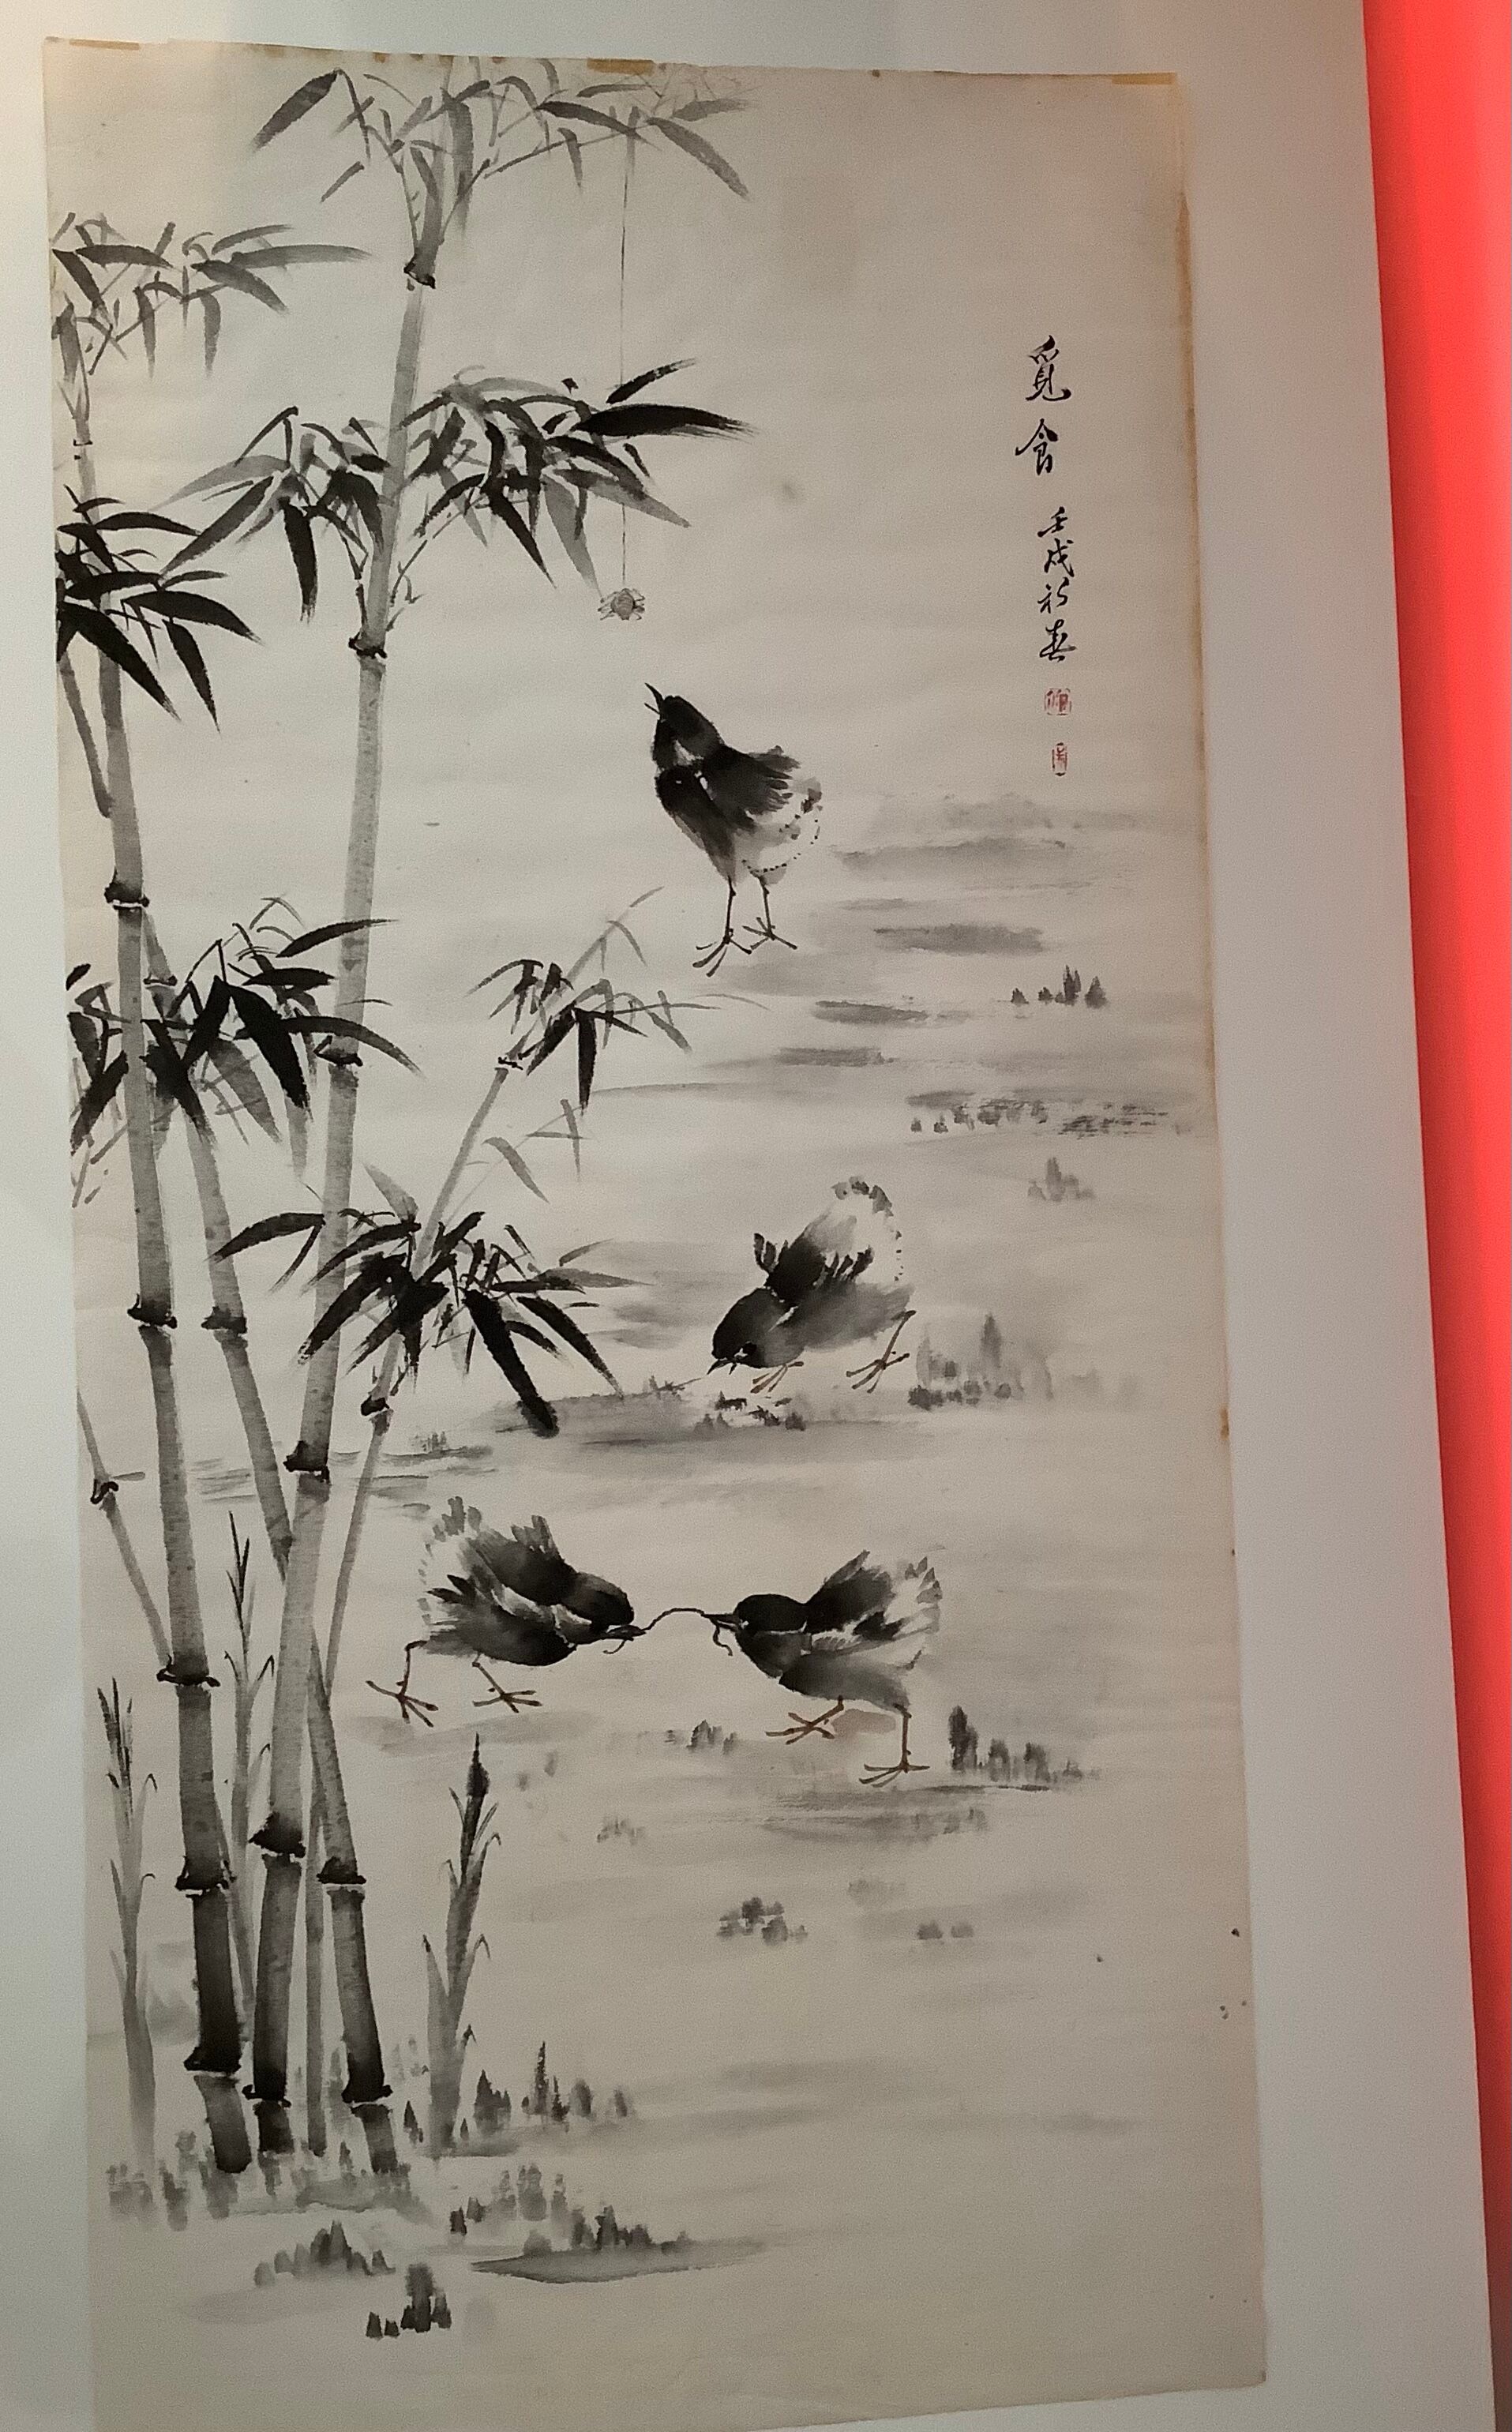 覓食
壬戌初春